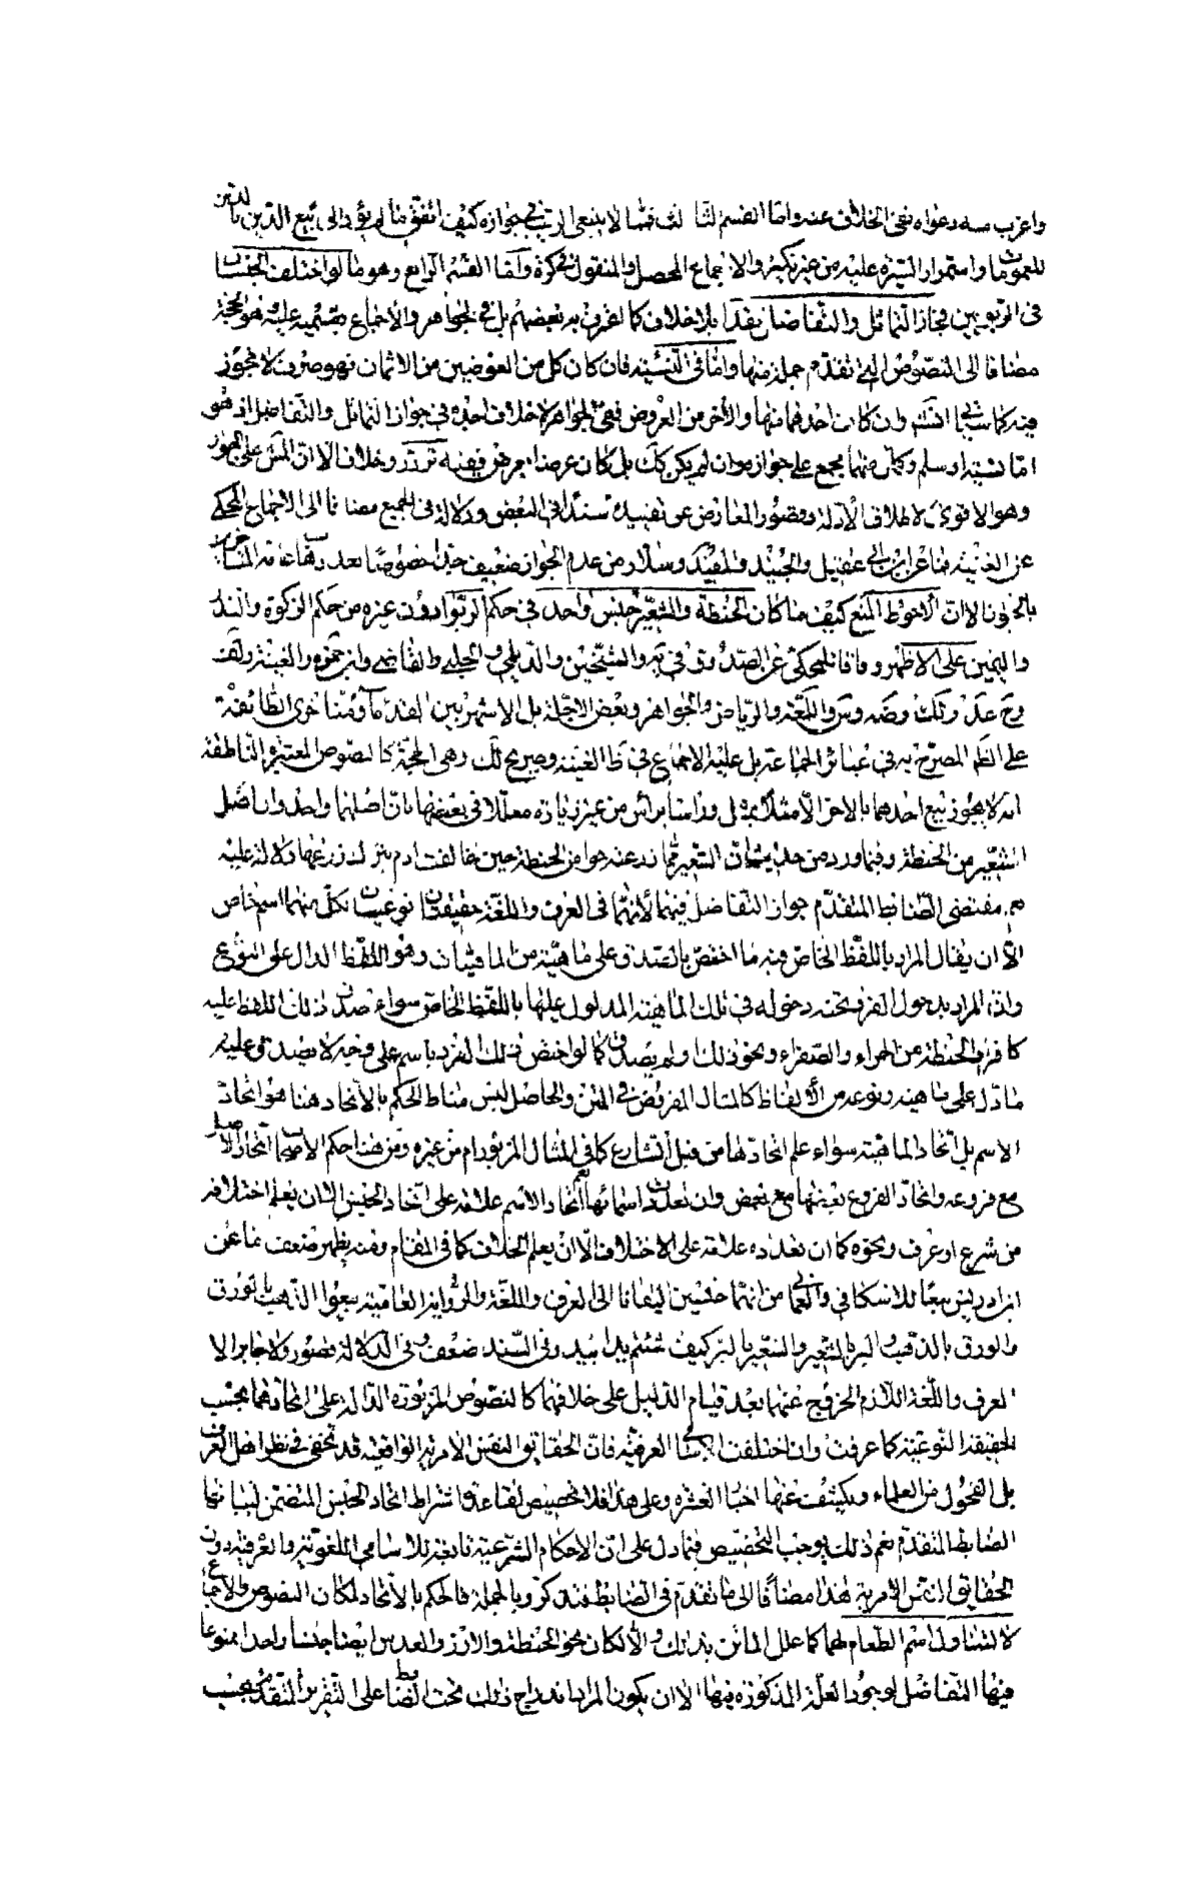 واغرب منه دعواه نفى الخلاف عنه واما القسم الثالث فمما لا ينبغى الريب فى جوازه كيف اتفق ما لم يؤد الى بيع الدين بالدين
للعمومات واستمرار السيرة عليه من غير نكير والاجماع المحصل والمنقول فى كره واما القسم الرابع وهو ما لو اختلف الجنسان
فى الربويين فجاز التماثل والتفاضل نقدا بلا خلاف كما اعترف به بعضهم بل فى الجواهر والاجماع بقسميه عليه فهو الحجة
مضافا الى النصوص التى تقدم جملة منها واما فى النسيئة فان كان كل من العوضين من الاثمان فهو صرف لا يجوز
فيه كما سيأتى انش وان كان احدهما منها والاخر من العروض ففى الجواهر لا خلاف اجده فى جواز التماثل والتفاضل اذ هو
اما نسيئة او سلم وكل منهما مجمع على جوازه وان لم يكن كك بل كان عرضا بعرض ففيه تردد وخلاف الا ان المش على الجواز
وهو الاقوى لاطلاق الادلة وقصور المعارض عن تقييده سندا فى البعض ودلالة فى الجميع مضافا الى الاجماع المحكى
عن الغنية فما عن ابن ابى عقيل والجنيد والمفيد وسلار من عدم الجواز ضعيف جدا خصوصا بعد رفعا عامة المتاخرين
الا ان الاحوط المنع كيف ما كان الحنطة والشعير جنس واحد فى حكم الربوا دون غيره من حكم الزكوة والنذر
واليمين على الاظهر وفاقا للمحكى عن الصدوق فى يه والشيخين والديلمى والحلبى والقاضى وابن حمزه والغنية
على الظ المصرح به فى عبائر الجماعة بل عليه الاجماع فى ظ الغنية وصريح لك وهى الحجة كالنصوص المعتبرة الناطقة
انه لا يجوز بيع احدهما بالاخر الا مثلا بمثل وراسا براس من غير زيادة معللا فى بعضها بان اصلهما واحد وان اصل
الشعير من الحنطة وفيما ورد من حديث ان الشعير مما زرعته حوا من الحنطة حين خالفت ادم بترك زرعها دلالة عليه
مقتضى الضابط المتقدم جواز التفاضل فيهما لانهما فى العرف واللغة حقيقتان نوعيتان لكل منهما اسم خاص
الا ان يقال المراد باللفظ الخاص فيه ما اختص بالصدق على ماهية من الماهيات وهو اللفظ الدال على النوع
وان المراد بدخول الفرد تحته دخوله فى تلك الماهية المدلول عليها باللفظ الخاص سواء صدق ذلك اللفظ عليه
كافراد الحنطة من الحمراء والصفراء ونحو ذلك او لم يصدق كما لو اختص ذلك الفرد باسم على وجه لا يصدق عليه
ما دل على ماهيته ونوعه من الالفاظ كالمثال المفروض فى المتن والحاصل ليس مناط الحكم بالاتحاد هنا هو اتحاد
الاسم بل اتحاد الماهية سواء علم اتحادها من قبل الشارع كما فى المثال المزبور ام من غيره ومن هنا حكم الاصحاب باتحاد الاصل
مع فروعه واتحاد الفروع بعضها مع بعض وان تعددت اسمائها نعم اتحاد الاسم علامة على اتحاد الجنس الا ان يعلم اختلافه
من شرع او عرف ونحوه كما ان تعدده علامة على الاختلاف الا ان يعلم الخلاف كما فى المقام ومنه يظهر ضعف ما عن
ابن ادريس تبعا للاسكافى والعمانى من انهما جنسين التفاتا الى العرف واللغة والرواية العامية بيعوا الذهب بالورق
والورق بالذهب والبر بالشعير والشعير بالبر كيف شئتم يدا بيد وفى السند ضعف وفى الدلالة قصور ولا جابر الا
العرف واللغة اللازم الخروج عنهما بعد قيام الدليل على خلافهما كالنصوص المزبورة الدالة على اتحادهما بحسب
الحقيقة النوعية كما عرفت وان اختلفت الاسامى العرفية فان الحقايق النفس الامرية الواقعية قد تخفى فى نظر اهل العرف
بل الفحول من العلماء ويكشف عنها اخبار العترة وعلى هذا فلا تخصيص لقاعدة اشتراط اتحاد الجنس المتضمن لبيانها
الضابط المتقدم نعم ذلك يوجب التخصيص فيما دل على ان الاحكام الشرعية تابعة للاسامى اللغوية والعرفية دون
الحقايق النفس الامرية هذا مضافا الى ما تقدم فى الضابط فتذكر وبالجملة فالحكم بالاتحاد لمكان النصوص والاجماع
لا لتناول اسم الطعام لهما كما علل الماتن بذلك والا لكان نحو الحنطة والارز والعدس ايضا جنسا واحدا ممنوعا
فيها التفاضل لوجود العلة المذكورة فيها الا ان يكون المراد اندراج ذلك تحت الضابط على التقرير المتقدم بحسب